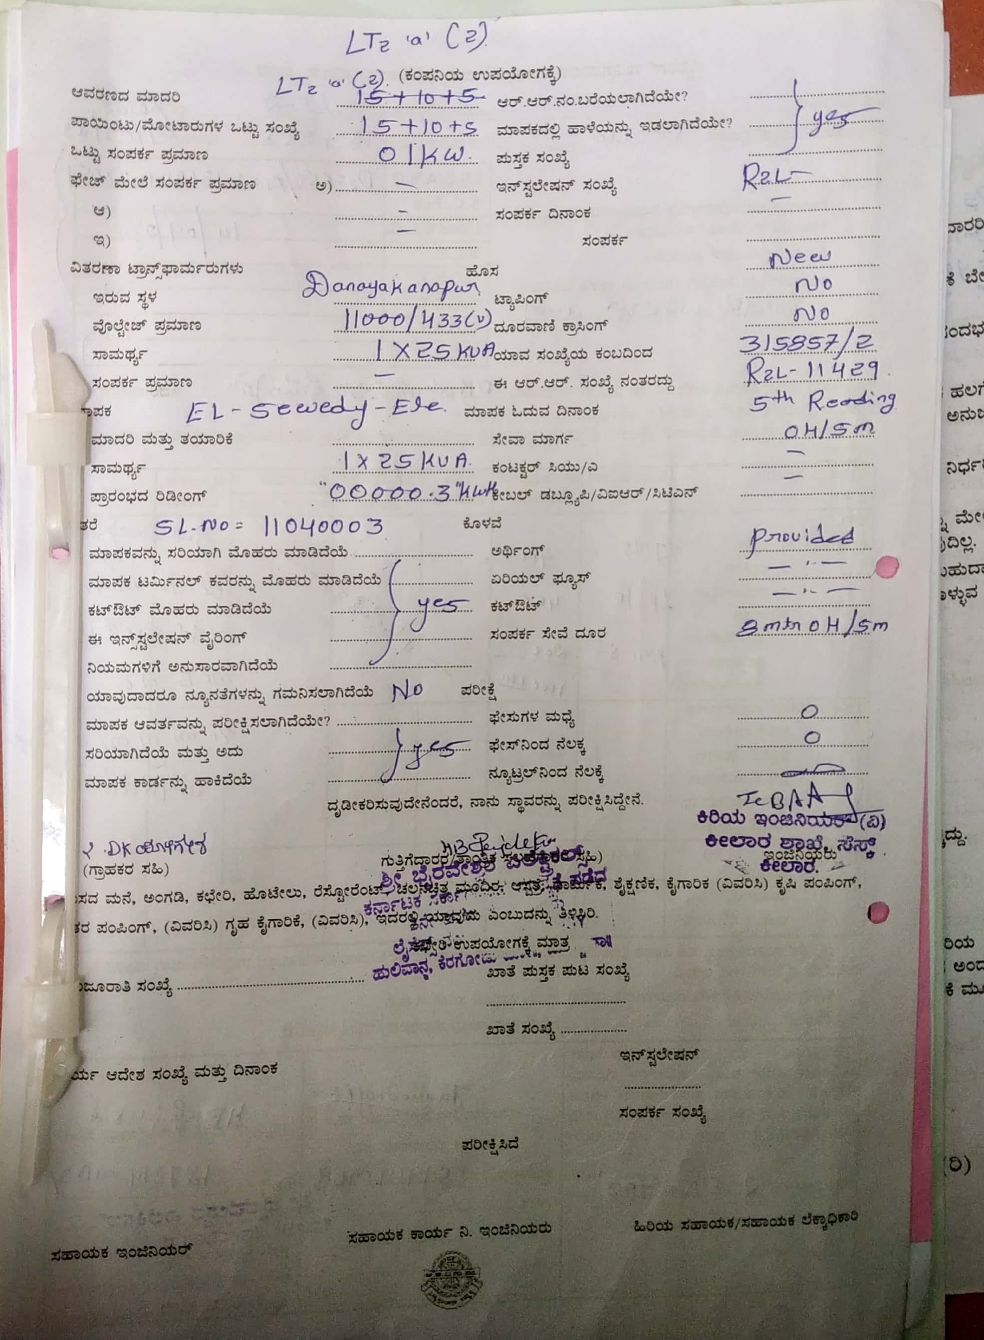 LT2 'a' (2)
LT2 'a' (2). (ಕಂಪನಿಯ ಉಪಯೋಗಕ್ಕೆ)
ಆವರಣದ ಮಾದರಿ 15+10+5 ಆರ್.ಆರ್.ನಂ.ಬರೆಯಲಾಗಿದೆಯೇ?
ಪಾಯಿಂಟು/ಮೋಟಾರುಗಳ ಒಟ್ಟು ಸಂಖ್ಯೆ 15+10+5 ಮಾಪಕದಲ್ಲಿ ಹಾಳೆಯನ್ನು ಇಡಲಾಗಿದೆಯೇ? yes
ಒಟ್ಟು ಸಂಪರ್ಕ ಪ್ರಮಾಣ 01KW. ಪುಸ್ತಕ ಸಂಖ್ಯೆ
ಫೇಜ್ ಮೇಲೆ ಸಂಪರ್ಕ ಪ್ರಮಾಣ ಅ) — ಇನ್‌ಸ್ಟಲೇಷನ್ ಸಂಖ್ಯೆ R2L-
ಆ) - ಸಂಪರ್ಕ ದಿನಾಂಕ —
ಇ) — ಸಂಪರ್ಕ
ವಿತರಣಾ ಟ್ರಾನ್ಸ್‌ಫಾರ್ಮರುಗಳು ಹೊಸ New
ಇರುವ ಸ್ಥಳ Danayakanapur ಟ್ಯಾಪಿಂಗ್ No
ವೋಲ್ಟೇಜ್ ಪ್ರಮಾಣ 11000/433(V) ದೂರವಾಣಿ ಕ್ರಾಸಿಂಗ್ No
ಸಾಮರ್ಥ್ಯ 1X25KVA ಯಾವ ಸಂಖ್ಯೆಯ ಕಂಬದಿಂದ 315857/2
ಸಂಪರ್ಕ ಪ್ರಮಾಣ — ಈ ಆರ್.ಆರ್. ಸಂಖ್ಯೆ ನಂತರದ್ದು R2L-11429
ಾಪಕ EL-Sewedy-Ele. ಮಾಪಕ ಓದುವ ದಿನಾಂಕ 5th Reading
ಮಾದರಿ ಮತ್ತು ತಯಾರಿಕೆ ಸೇವಾ ಮಾರ್ಗ OH/Sm
ಸಾಮರ್ಥ್ಯ 1X25KVA. ಕಂಟಕ್ಟರ್ ಸಿಯು/ಎ —
ಪ್ರಾರಂಭದ ರಿಡೀಂಗ್ "00000.3"KWH ಕೇಬಲ್ ಡಬ್ಲ್ಯೂಪಿ/ವಿಐಆರ್/ಸಿಟಿಎನ್ —
ತರೆ SL.No= 11040003 ಕೊಳವೆ
ಮಾಪಕವನ್ನು ಸರಿಯಾಗಿ ಮೊಹರು ಮಾಡಿದೆಯೆ ಅರ್ಥಿಂಗ್ Provided
ಮಾಪಕ ಟರ್ಮಿನಲ್ ಕವರನ್ನು ಮೊಹರು ಮಾಡಿದೆಯೆ ಏರಿಯಲ್ ಫ್ಯೂಸ್ —"—
ಕಟ್‌ಔಟ್ ಮೊಹರು ಮಾಡಿದೆಯೆ yes ಕಟ್‌ಔಟ್ —"—
ಈ ಇನ್ಸ್‌ಸ್ಟಲೇಷನ್ ವೈರಿಂಗ್ ಸಂಪರ್ಕ ಸೇವೆ ದೂರ 8mtr OH/Sm
ನಿಯಮಗಳಿಗೆ ಅನುಸಾರವಾಗಿದೆಯೆ
ಯಾವುದಾದರೂ ನ್ಯೂನತೆಗಳನ್ನು ಗಮನಿಸಲಾಗಿದೆಯೆ No ಪರೀಕ್ಷೆ
ಮಾಪಕ ಆವರ್ತವನ್ನು ಪರೀಕ್ಷಿಸಲಾಗಿದೆಯೇ? ಫೇಸುಗಳ ಮಧ್ಯೆ 0
ಸರಿಯಾಗಿದೆಯೆ ಮತ್ತು ಅದು yes ಫೇಸ್‌ನಿಂದ ನೆಲಕ್ಕ 0
ಮಾಪಕ ಕಾರ್ಡನ್ನು ಹಾಕಿದೆಯೆ ನ್ಯೂಟ್ರಲ್‌ನಿಂದ ನೆಲಕ್ಕೆ
ದೃಢೀಕರಿಸುವುದೇನೆಂದರೆ, ನಾನು ಸ್ಥಾವರನ್ನು ಪರೀಕ್ಷಿಸಿದ್ದೇನೆ.
ಕಿರಿಯ ಇಂಜಿನಿಯರ್ (ವಿ)
ಕೀಲಾರ ಶಾಖೆ, ಸೆಸ್ಕ್
ಕೀಲಾರ.
ಇಂಜಿನಿಯರು
(ಗ್ರಾಹಕರ ಸಹಿ) ಗುತ್ತಿಗೆದಾರರ ಸಹಿ)
ಶ್ರೀ ಭೈರವೇಶ್ವರ ಎಲೆಕ್ಟ್ರಿಕಲ್ಸ್
ಾಸದ ಮನೆ, ಅಂಗಡಿ, ಕಛೇರಿ, ಹೊಟೇಲು, ರೆಸ್ಟೋರೆಂಟ್, ಚಲನಚಿತ್ರ ಮಂದಿರ, ಆಸ್ಪತ್ರೆ, ಧಾರ್ಮಿಕ, ಶೈಕ್ಷಣಿಕ, ಕೈಗಾರಿಕ (ವಿವರಿಸಿ) ಕೃಷಿ ಪಂಪಿಂಗ್,
ಕರ್ನಾಟಕ
ತರ ಪಂಪಿಂಗ್, (ವಿವರಿಸಿ) ಗೃಹ ಕೈಗಾರಿಕೆ, (ವಿವರಿಸಿ), ಇದರಲ್ಲಿ ಯಾವುದು ಎಂಬುದನ್ನು ತಿಳಿಸಿರಿ.
ಉಪಯೋಗಕ್ಕೆ ಮಾತ್ರ
ಹುಲಿವಾನ, ಕೆರಗೋಡು
ಂಜೂರಾತಿ ಸಂಖ್ಯೆ ಖಾತೆ ಪುಸ್ತಕ ಪುಟ ಸಂಖ್ಯೆ
ಖಾತೆ ಸಂಖ್ಯೆ
ಇನ್‌ಸ್ಟಲೇಷನ್
ರ್ಯ ಆದೇಶ ಸಂಖ್ಯೆ ಮತ್ತು ದಿನಾಂಕ
ಸಂಪರ್ಕ ಸಂಖ್ಯೆ
ಪರೀಕ್ಷಿಸಿದೆ
ಸಹಾಯಕ ಇಂಜಿನಿಯರ್ ಸಹಾಯಕ ಕಾರ್ಯ ನಿ. ಇಂಜಿನಿಯರು ಹಿರಿಯ ಸಹಾಯಕ/ಸಹಾಯಕ ಲೆಕ್ಕಾಧಿಕಾರಿ